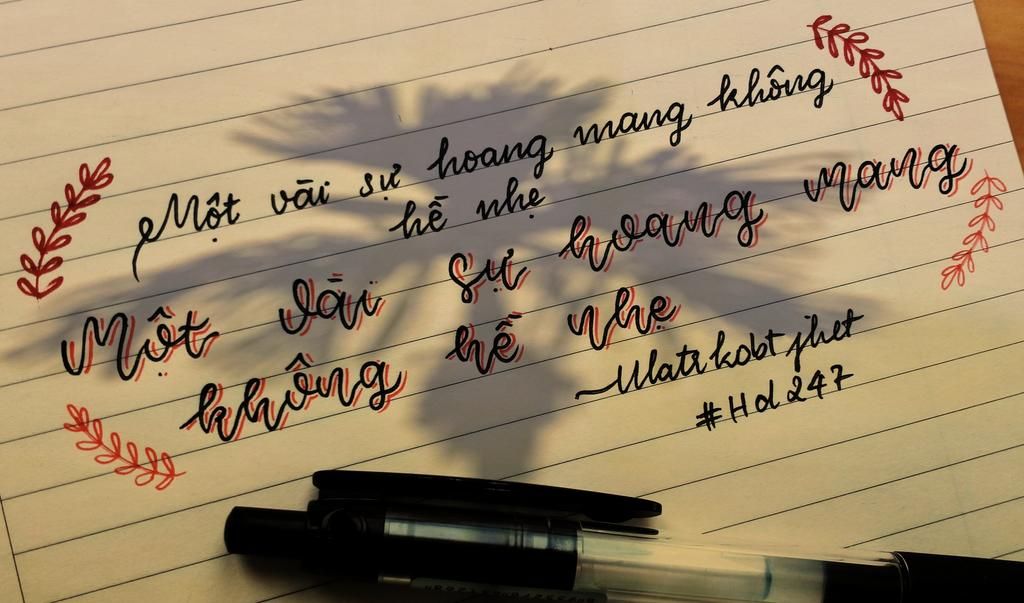 Một vài sự hoang mang không
hề nhẹ
Một vài sự hoang mang
không hề nhẹ
#Hd247